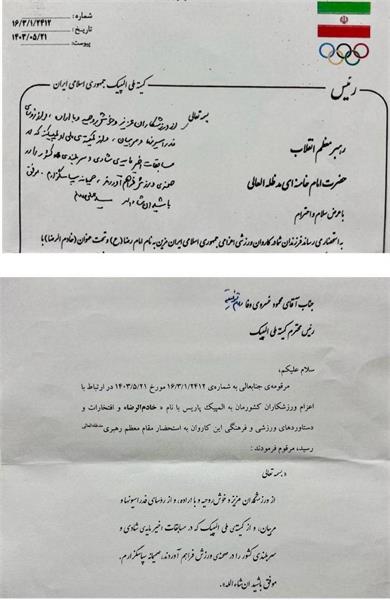 شماره : ۱۶/۳/۱/۲۴۱۲
تاریخ : ۱۴۰۳/۰۵/۲۱
پیوست:
کمیته ملی المپیک جمهوری اسلامی ایران
رئیس
بسمه تعالی
از ورزشکاران عزیز و خوش‌روحیه و با اراده، و از رؤسای
فدراسیونها و مربیان، و از کمیته‌ی ملی المپیک که در
مسابقات اخیر مایه‌ی شادی و سربلندی کشور را در
صحنه‌ی ورزش فراهم آوردند، صمیمانه سپاسگزارم. موفق
باشید ان شاءالله
رهبر معظم انقلاب
حضرت امام خامنه ای مد ظله العالی
با عرض سلام و احترام
به استحضار می رساند فرزندان شما در کاروان ورزشی اعزامی جمهوری اسلامی ایران مزین به نام امام رضا (ع) و تحت عنوان (خادم الرضا) با
جناب آقای محمود خسروی وفا
رئیس محترم کمیته ملی المپیک
سلام علیکم،
مرقومه‌ی جنابعالی به شماره‌ی ۱۶/۳/۱/۲۴۱۲ مورخ ۱۴۰۳/۵/۲۱ در ارتباط با
اعزام ورزشکاران کشورمان به المپیک پاریس با نام « خادم‌الرضا» و افتخارات و
دستاوردهای ورزشی و فرهنگی این کاروان به استحضار مقام معظم رهبری مدظله‌العالی
رسید، مرقوم فرمودند :
« بسمه تعالی
از ورزشکاران عزیز و خوش روحیه و با اراده، و از رؤسای فدراسیونها و
مربیان، و از کمیته‌ی ملی المپیک که در مسابقات اخیر مایه‌ی شادی و
سربلندی کشور را در صحنه‌ی ورزش فراهم آوردند، صمیمانه سپاسگزارم.
موفق باشید ان شاء الله».